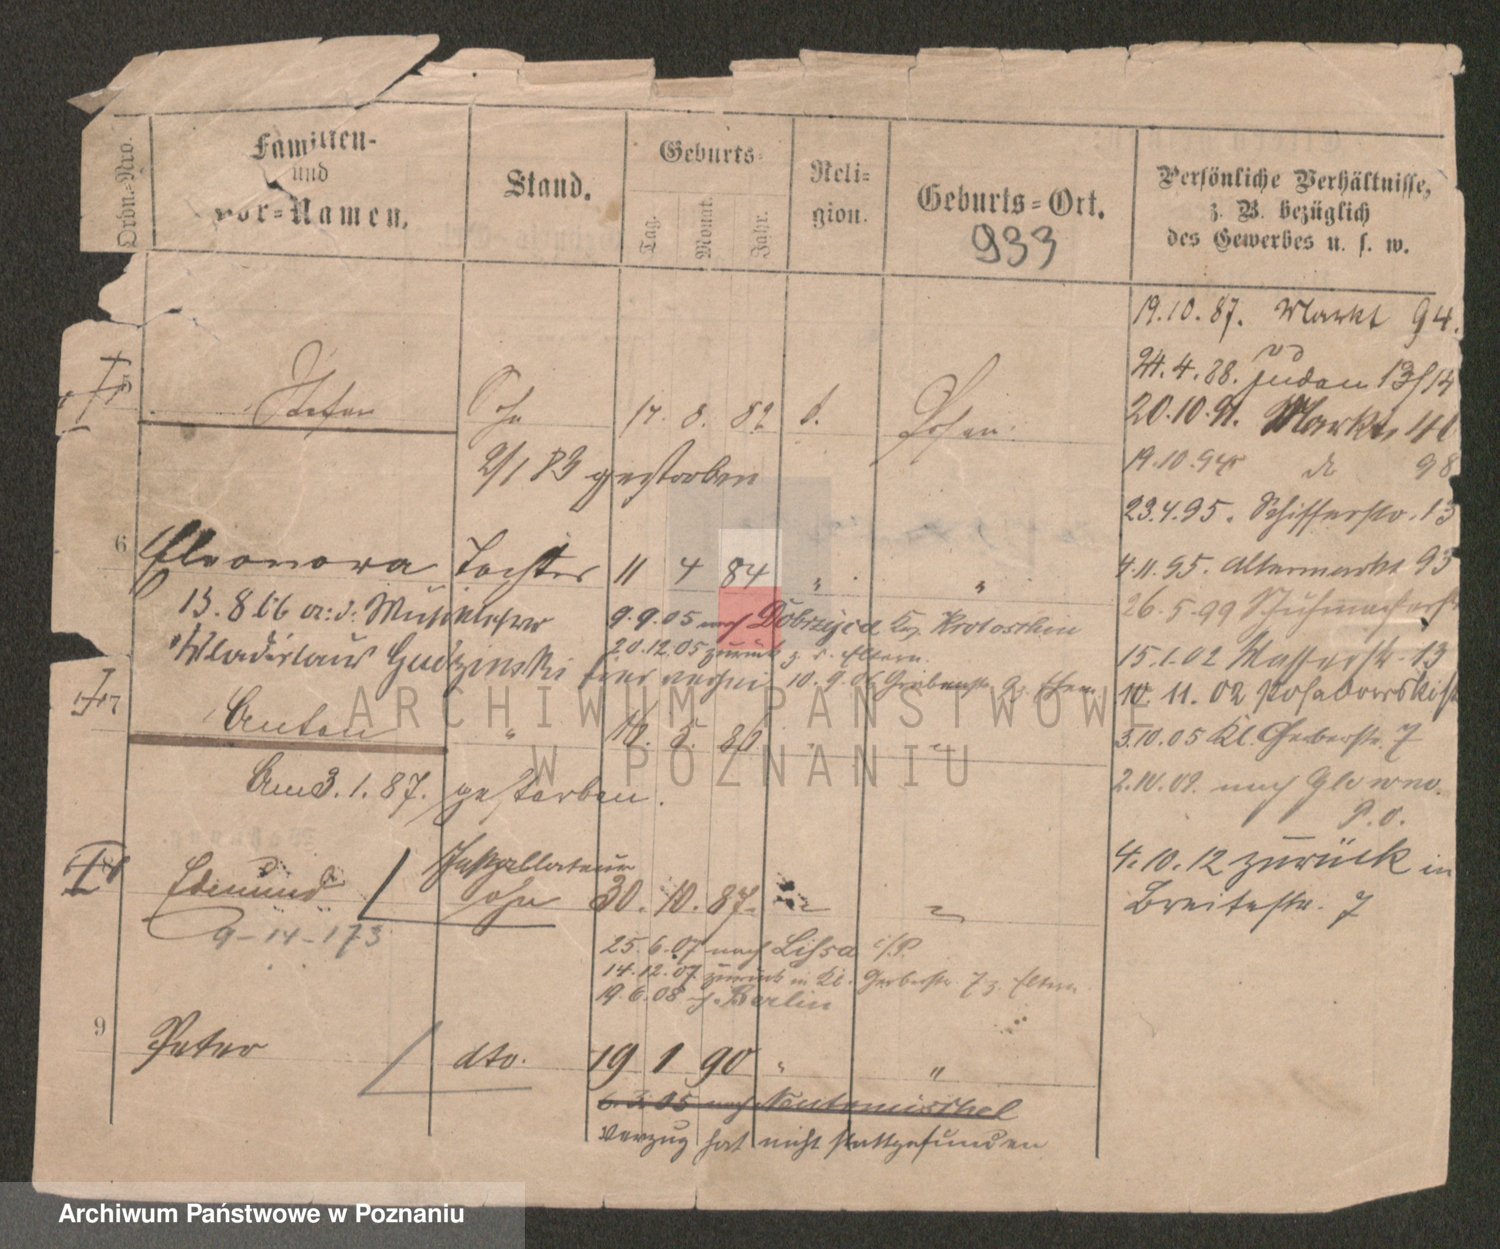 Ordn.=Nro.
Familien-
und
Vor=Namen.
Stand.
Geburts=
Tag.
Monat.
Jahr.
Reli=
gion.
Geburts=Ort.
933
Persönliche Verhältnisse,
z. B. bezüglich
des Gewerbes u. s. w.
19.10.87. Markt 94.
24.4.88. Juden 13/14
20.10.91. Markt
19.10.94 do 98
23.4.95. Schifferstr. 13
4.11.95. Altermarkt 93
26.5.99 Schuhmacherstr
15.1.02 Wasserstr. 13
10.11.02 Posadowskistr
3.10.05 Kl. Gerberstr. 7
2.10.09. nach Glowno.
P. O.
4.10.12 zurück in
Breitestr. 7
5
Stefan Sohn 17. 8. 82 k. Posen.
2/1 83 gestorben
6
Eleonora Tochter 11 4 84 " "
13.8.06
9.9.05 nach Dobrzyca Krs. Krotoschin
20.12.05 zurück z. d. Eltern.
Wladislaus Gudzinski hier verh. 10.9.06 Grabenstr.
7
Anton " 10. 5. 86 " "
Am 3.1.87. gestorben.
8
Edmund Installateur
Sohn 30. 10. 87. " "
9-14-173
25.6.07 nach Lissa i/P.
14.12.07 zurück in Kl. Gerberstr. 7 z. Eltern
19.6.08 n. Berlin
9
Peter dto. 19 1 90 " "
6.3.05 nach Neutomischel
Verzug hat nicht stattgefunden
ARCHIWUM PAŃSTWOWE
W POZNANIU
Archiwum Państwowe w Poznaniu